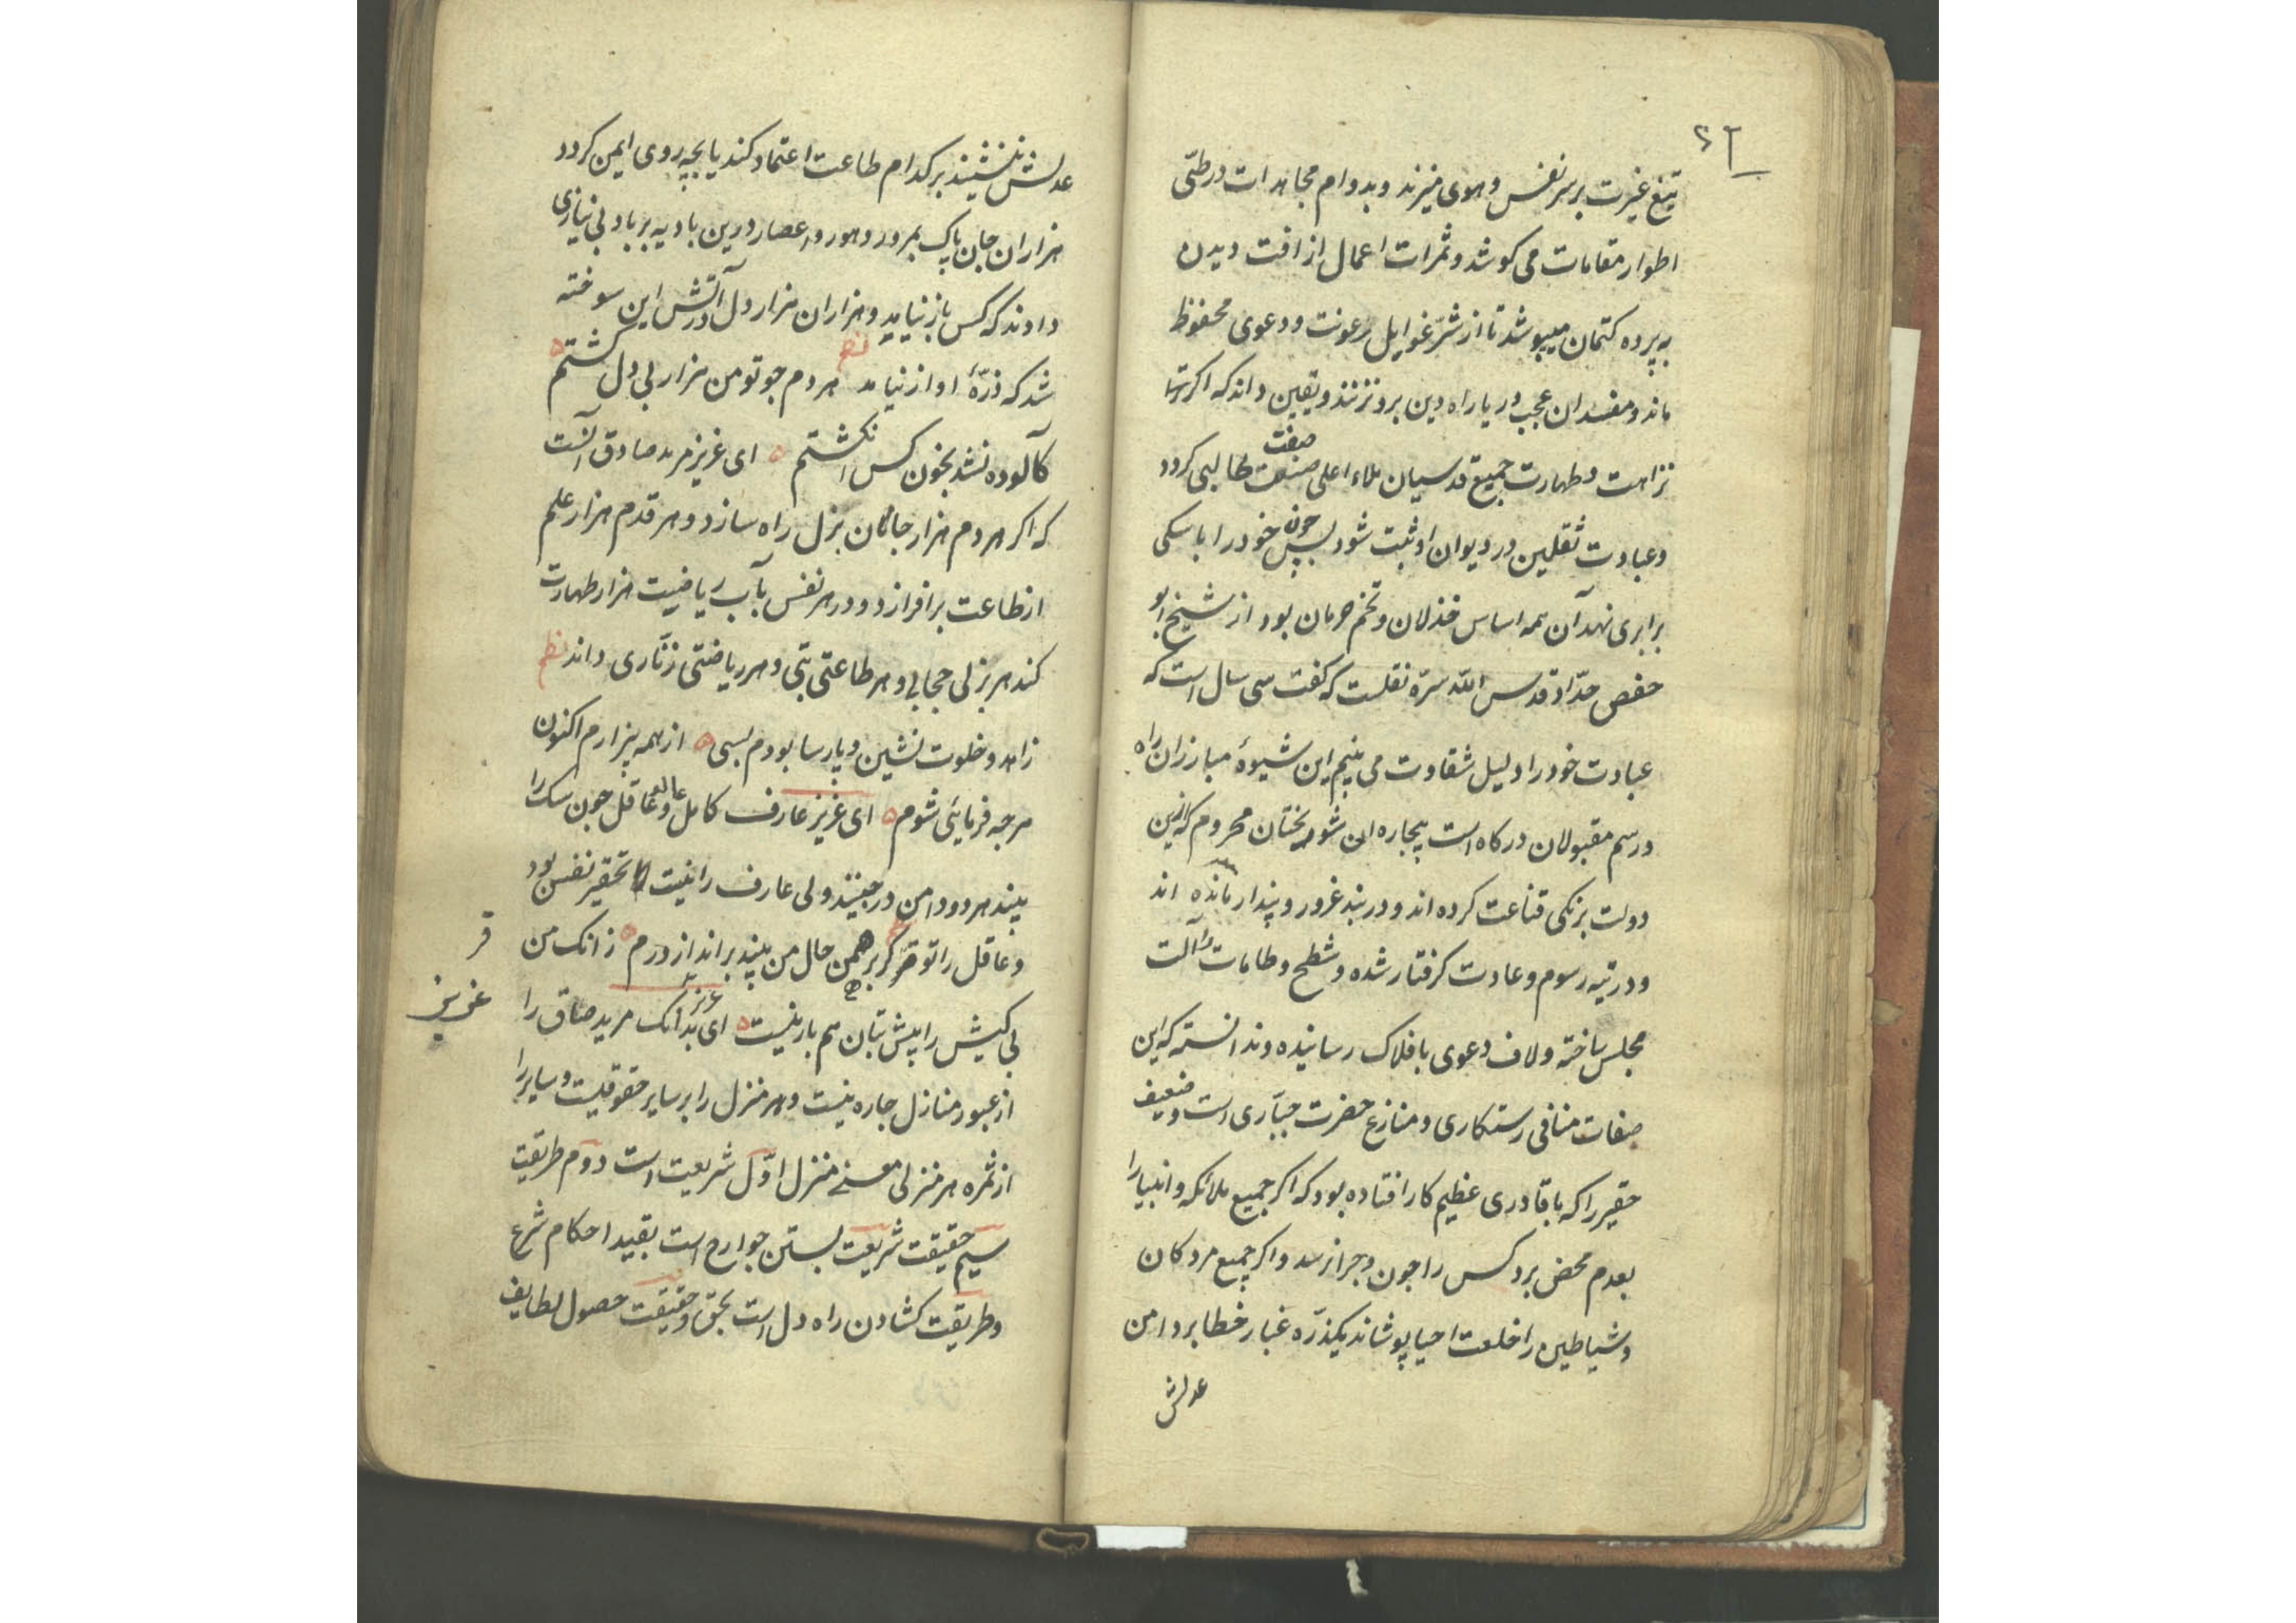 ۶۲
تیغ غیرت بر سر نفس و هوی میزند و بدوام مجاهدات در طیّ
اطوار مقامات می کوشد و ثمرات اعمال از افت دیدن
به پرده کتمان میپوشد تا از شرّ غوایل رعونت و دعوی محفوظ
ماند و مفسدان عجب و ریا راه دین برو نزنند و یقین داند که اکر تنها
نزاهت و طهارت جمیع قدسیان ملاء اعلی صفت طالبی کردد
وعبادت ثقلین در دیوان او ثبت شود پس چون خود را با سکی
برابری نهد آن همه اساس خذلان و تخم حرمان بود از شیخ ابو
حفص حدّاد قدس اللّه سرّه نقلست که کفت سی سال است که
عبادت خود را دلیل شقاوت می بینم این شیوهٔ مبارزان راه
و رسم مقبولان درکاه است بیجاره ان شوربختان محروم که ازین
دولت برنکی قناعت کرده اند و در بند غرور و پندار مانده اند
و در تیه رسوم و عادت کرفتار شده و شطح و طامات را آلت
مجلس ساخته و لاف دعوی بافلاک رسانیده و ندانسته که این
صفات منافی رستکاری و منازع حضرت جبّاری است و ضعیف
حقیر را که با قادری عظیم کار افتاده بود که اکر جمیع ملائکه و انبیا را
بعدم محض برد کس را جون و جرا نرسد و اکر جمیع مردکان
و شیاطین را خلعت احیا پوشاند یکذرّه غبار خطا بر دامن
عدلش
عدلش ننشیند بر کدام طاعت اعتماد کند یا بچه روی ایمن کردد
هزاران جان پاک بمرور دهور و اعصار درین بادیه بر باد بی نیازی
دادند که کس باز نیامد و هزاران هزار دل در آتش این سوخته
شد که ذرّهٔ اواز نیامد نظم هر دم جو تو من هزار بی دل کشتم
کآلوده نشد بخون کس انکشتم ای عزیز مرید صادق آنست
که اکر هر دم هزار جان بذل راه سازد و هر قدم هزار علم
از طاعت برافرازد و در هر نفس بآب ریاضیت هزار طهارت
کند هر بزلی حجابی و هر طاعتی بتی و هر ریاضتی زنّاری داند نظم
زاهد و خلوت نشین و پارسا بودم بسی از همه بیزارم اکنون
هرجه فرمائی شوم ای عزیز عارف کامل و عاقل جون سک را
بیند هر دو دامن درجینند ولی عارف را نیت تحقیر نفس بود
و عاقل را کر برهمن حال من بیند براندازد درم زانک من
بی کیش را پیش بتان هم بار نیست ای عزیز بدانک مرید صادق را
از عبور منازل جاره نیست و هر منزل را بر سایر حقوقیست و سایر را
از ثمره هر منزلی منزل اوّل شریعت است دوم طریقت
سیم حقیقت شریعت بستن جوارح است بقید احکام شرع
و طریقت کشادن راه دل است بحق و حقیقت حصول لطایف
عزیز